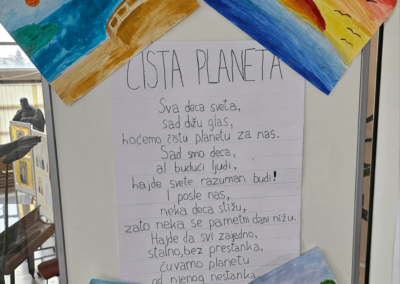 ČISTA PLANETA
Sva deca sveta,
sad dižu glas,
hoćemo čistu planetu za nas.
Sad smo deca,
al budući ljudi,
hajde svete razuman budi!
I posle nas,
neka deca stižu,
zato neka se pametni dani nižu.
Hajde da svi zajedno,
stalno, bez prestanka,
čuvamo planetu
od njenog nestanka